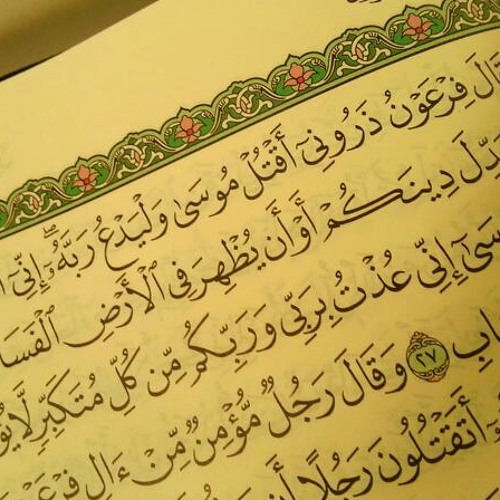 قَالَ فِرْعَوْنُ ذَرُونِىٓ أَقْتُلْ مُوسَىٰ وَلْيَدْعُ رَبَّهُۥٓ ۖ إِنِّىٓ
دِّلَ دِينَكُمْ أَوْ أَن يُظْهِرَ فِى ٱلْأَرْضِ ٱلْفَسَا
سَىٰٓ إِنِّى عُذْتُ بِرَبِّى وَرَبِّكُم مِّن كُلِّ مُتَكَبِّرٍ لَّا يُؤْ
ابِ ٢٧ وَقَالَ رَجُلٌ مُّؤْمِنٌ مِّنْ ءَالِ فِرْعَ
أَتَقْتُلُونَ رَجُلًا أَن